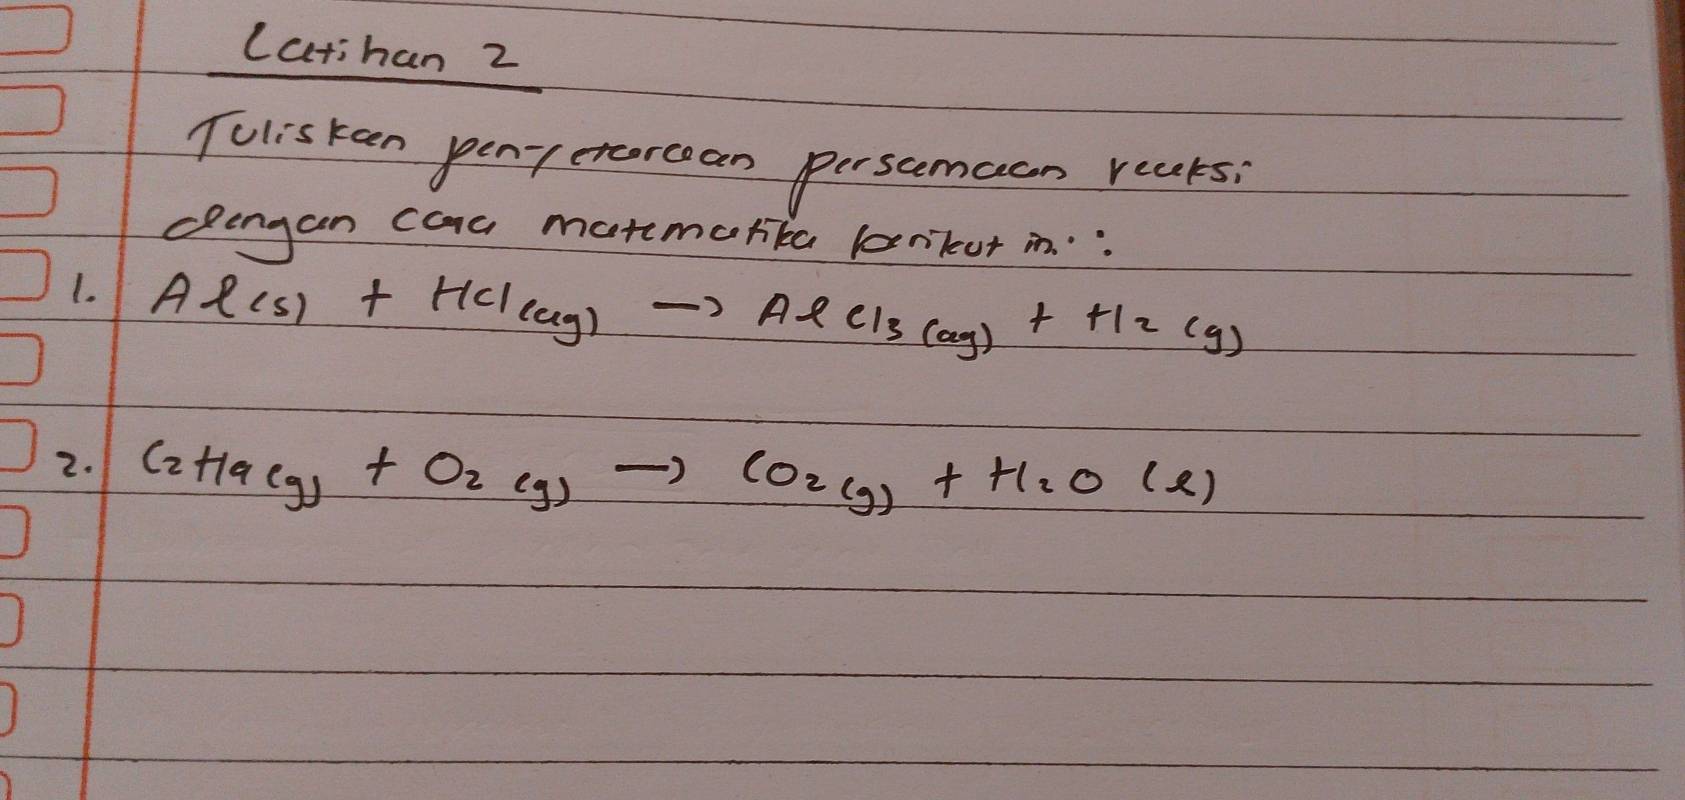 Latihan 2
Tuliskan penyetaraan persamaan reaksi
dengan cara matematika berikut ini :
1. Al(s) + HCl(aq) → AlCl3(aq) + H2(g)
2. C2H4(g) + O2(g) → CO2(g) + H2O(l)